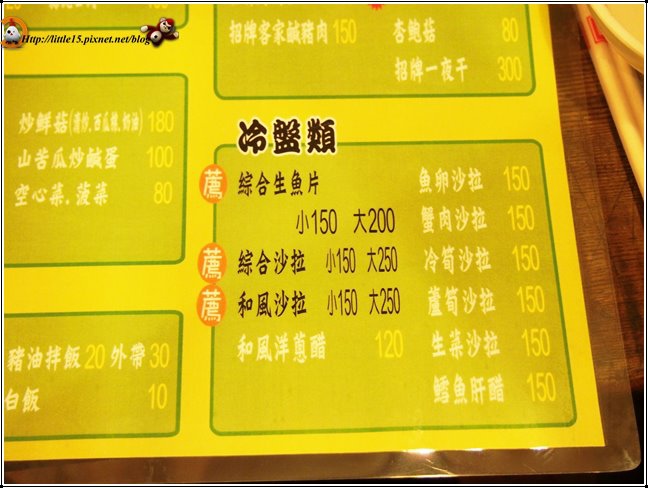 Http://little15.pixnet.net/blog
招牌客家鹹豬肉 150
杏鮑菇 80
招牌一夜干 300
炒鮮菇(清炒,西瓜綿,奶油) 180
山苦瓜炒鹹蛋 100
空心菜.菠菜 80
豬油拌飯 20 外帶 30
白飯 10
冷盤類
薦 綜合生魚片
小150 大200
薦 綜合沙拉 小150 大250
薦 和風沙拉 小150 大250
和風洋蔥醋 120
魚卵沙拉 150
蟹肉沙拉 150
冷筍沙拉 150
蘆筍沙拉 150
生菜沙拉 150
鱈魚肝醋 150